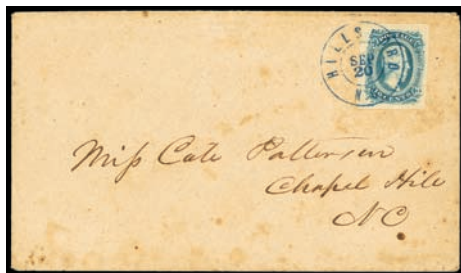 HILLS RD
SEP
20
N
Miss Cate Patterson
Chapel Hill
NC